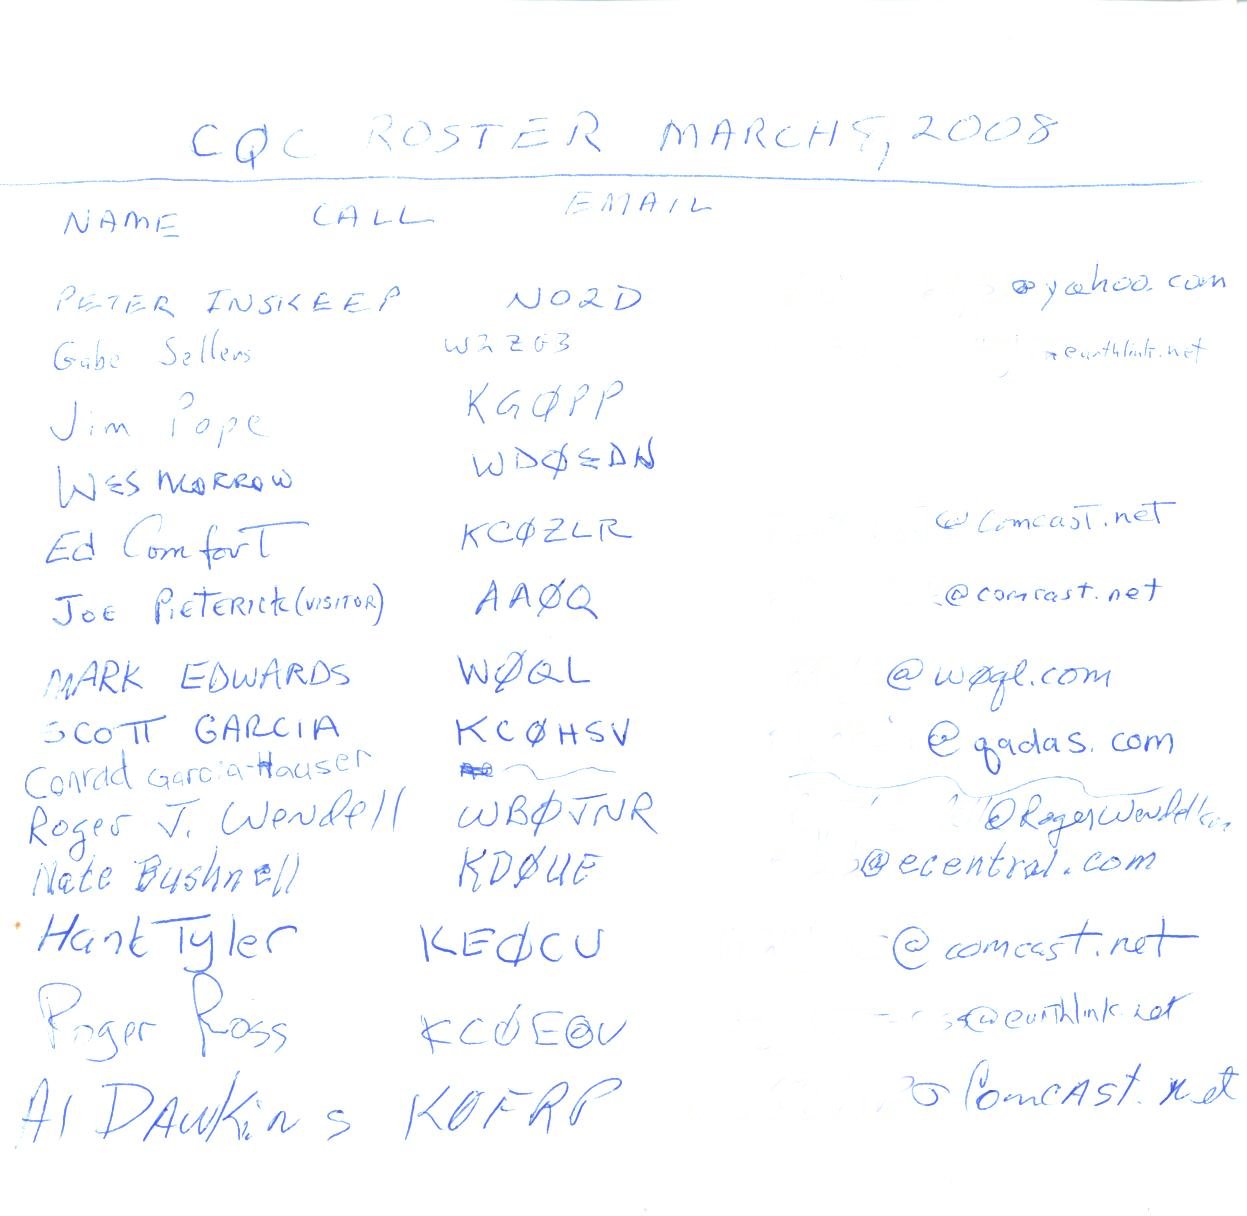 CQC ROSTER MARCH 8, 2008
NAME CALL EMAIL
PETER INSKEEP NO2D @yahoo.com
Gabe Sellers W2ZG3 earthlink.net
Jim Pope KGØPP
WES MORROW WDØEDN
Ed Comfort KCØZLR @Comcast.net
JOE PIETERICK (VISITOR) AAØQ @comcast.net
MARK EDWARDS WØQL @wøql.com
SCOTT GARCIA KCØHSV @qadas.com
Conrad Garcia-Hauser
Roger J. Wendell WBØJNR @RogerWendell.com
Nate Bushnell KDØUE @ecentral.com
Hank Tyler KEØCU @comcast.net
Roger Ross KCØEQU @earthlink.net
Al DAWKins KØFRP @ComcAST.net